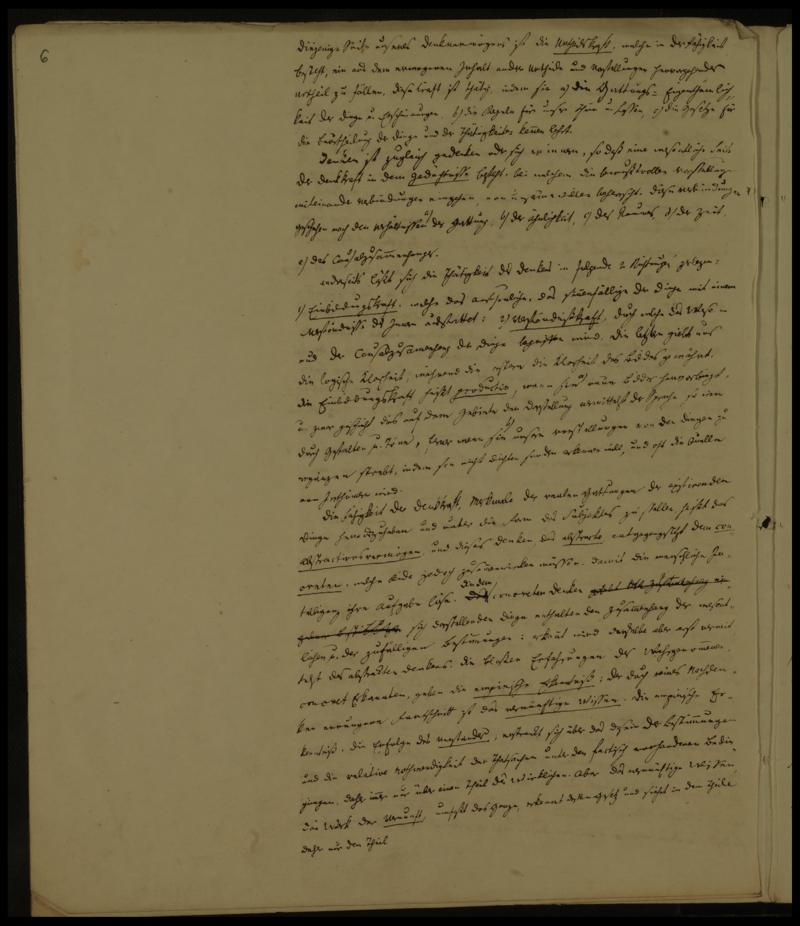 6
Diejenige Seite unseres Denkvermögens ist die Urtheilskraft, welche in der Fähigkeit
besteht, ein aus dem Inhalt anderer Urtheile und Vorstellungen hervorgehendes
Urtheil zu fällen. Diese Kraft ist thätig, indem sie a) die Gattungs- Eigenthümlich-
keit der Dinge u. Erscheinungen, b) die Regeln für unser Thun u. Lassen, c) die Gesetze für
die Beurtheilung der Dinge und der Thätigkeiten kennen lehrt.
Denken ist zugleich gedenken oder sich erinnern, so daß eine wesentliche Seite
der Denkkraft in dem Gedächtniße besteht, bei welchem die Vorstellungen
miteinander Verbindungen eingehen, von unserm Willen beherrscht. Diese Verbindungen
geschehen nach den Verhältnissen a) der Gattung, b) der Ähnlichkeit, c) des Raumes, d) der Zeit,
e) des Causalzusammenhangs.
Anderseits läßt sich die Thätigkeit des Denkens in folgende 2 Richtungen zerlegen:
1) Einbildungskraft, welche das Anschauliche, das Sinnenfällige der Dinge mit einem
Verständniße des Innern ausstattet; 2) Verständnißkraft, durch welche das Wesen
aus der Causalzusammenhang der Dinge begriffen wird. Die letztere giebt uns
die logische Klarheit, während die erstere die Klarheit des Bildes gewährt.
Die Einbildungskraft heißt productiv, wenn sie neue Bilder hervorbringt,
u. zwar geschieht dies auf dem Gebiete der Darstellung vermittelst der Sprache, so wie
durch Gestalten u. Töne, ferner wenn sie unsere Vorstellungen von den Dingen zu
ergänzen strebt, indem sie nicht dichten sondern erkennen will, und oft die Quelle
von Irrthümern wird.
Die Fähigkeit der Denkkraft, Merkmale der realen Gattungen der existirenden
Dinge hervorzuheben und unter die Form des Subjektes zu stellen, heißt das
Abstractionsvermögen, und dieses Denken, das abstracte, entgegengesetzt dem con-
creten, welche beide jedoch zusammenwirken müssen, damit die menschliche In-
telligenz ihre Aufgabe löse. concreten Denken
sich darstellenden Dinge enthalten den Zusammenhang der wesent-
lichen u. der zufälligen Bestimmungen; erkannt wird derselbe aber erst vermit-
telst des abstracten Denkens. Die Erfahrungen des Wahrgenommenen,
concret Erkannten, geben die empirische Erkenntniß; der durch reines Nachden-
ken errungene Fortschritt ist das vernünftige Wissen. Die empirische Er-
kenntniß, die Erfolge des Verstandes, erstreckt sich über das Dasein der Bestimmungen
und die relative Nothwendigkeit der Thatsachen unter den factisch vorhandenen Bedin-
gungen, daher immer nur über einen Theil des Wirklichen. Aber das vernünftige Wissen,
das Werk der Vernunft, umfaßt das Ganze, erkennt dessen Gesetz und sieht in dem Theile
daher nur den Theil